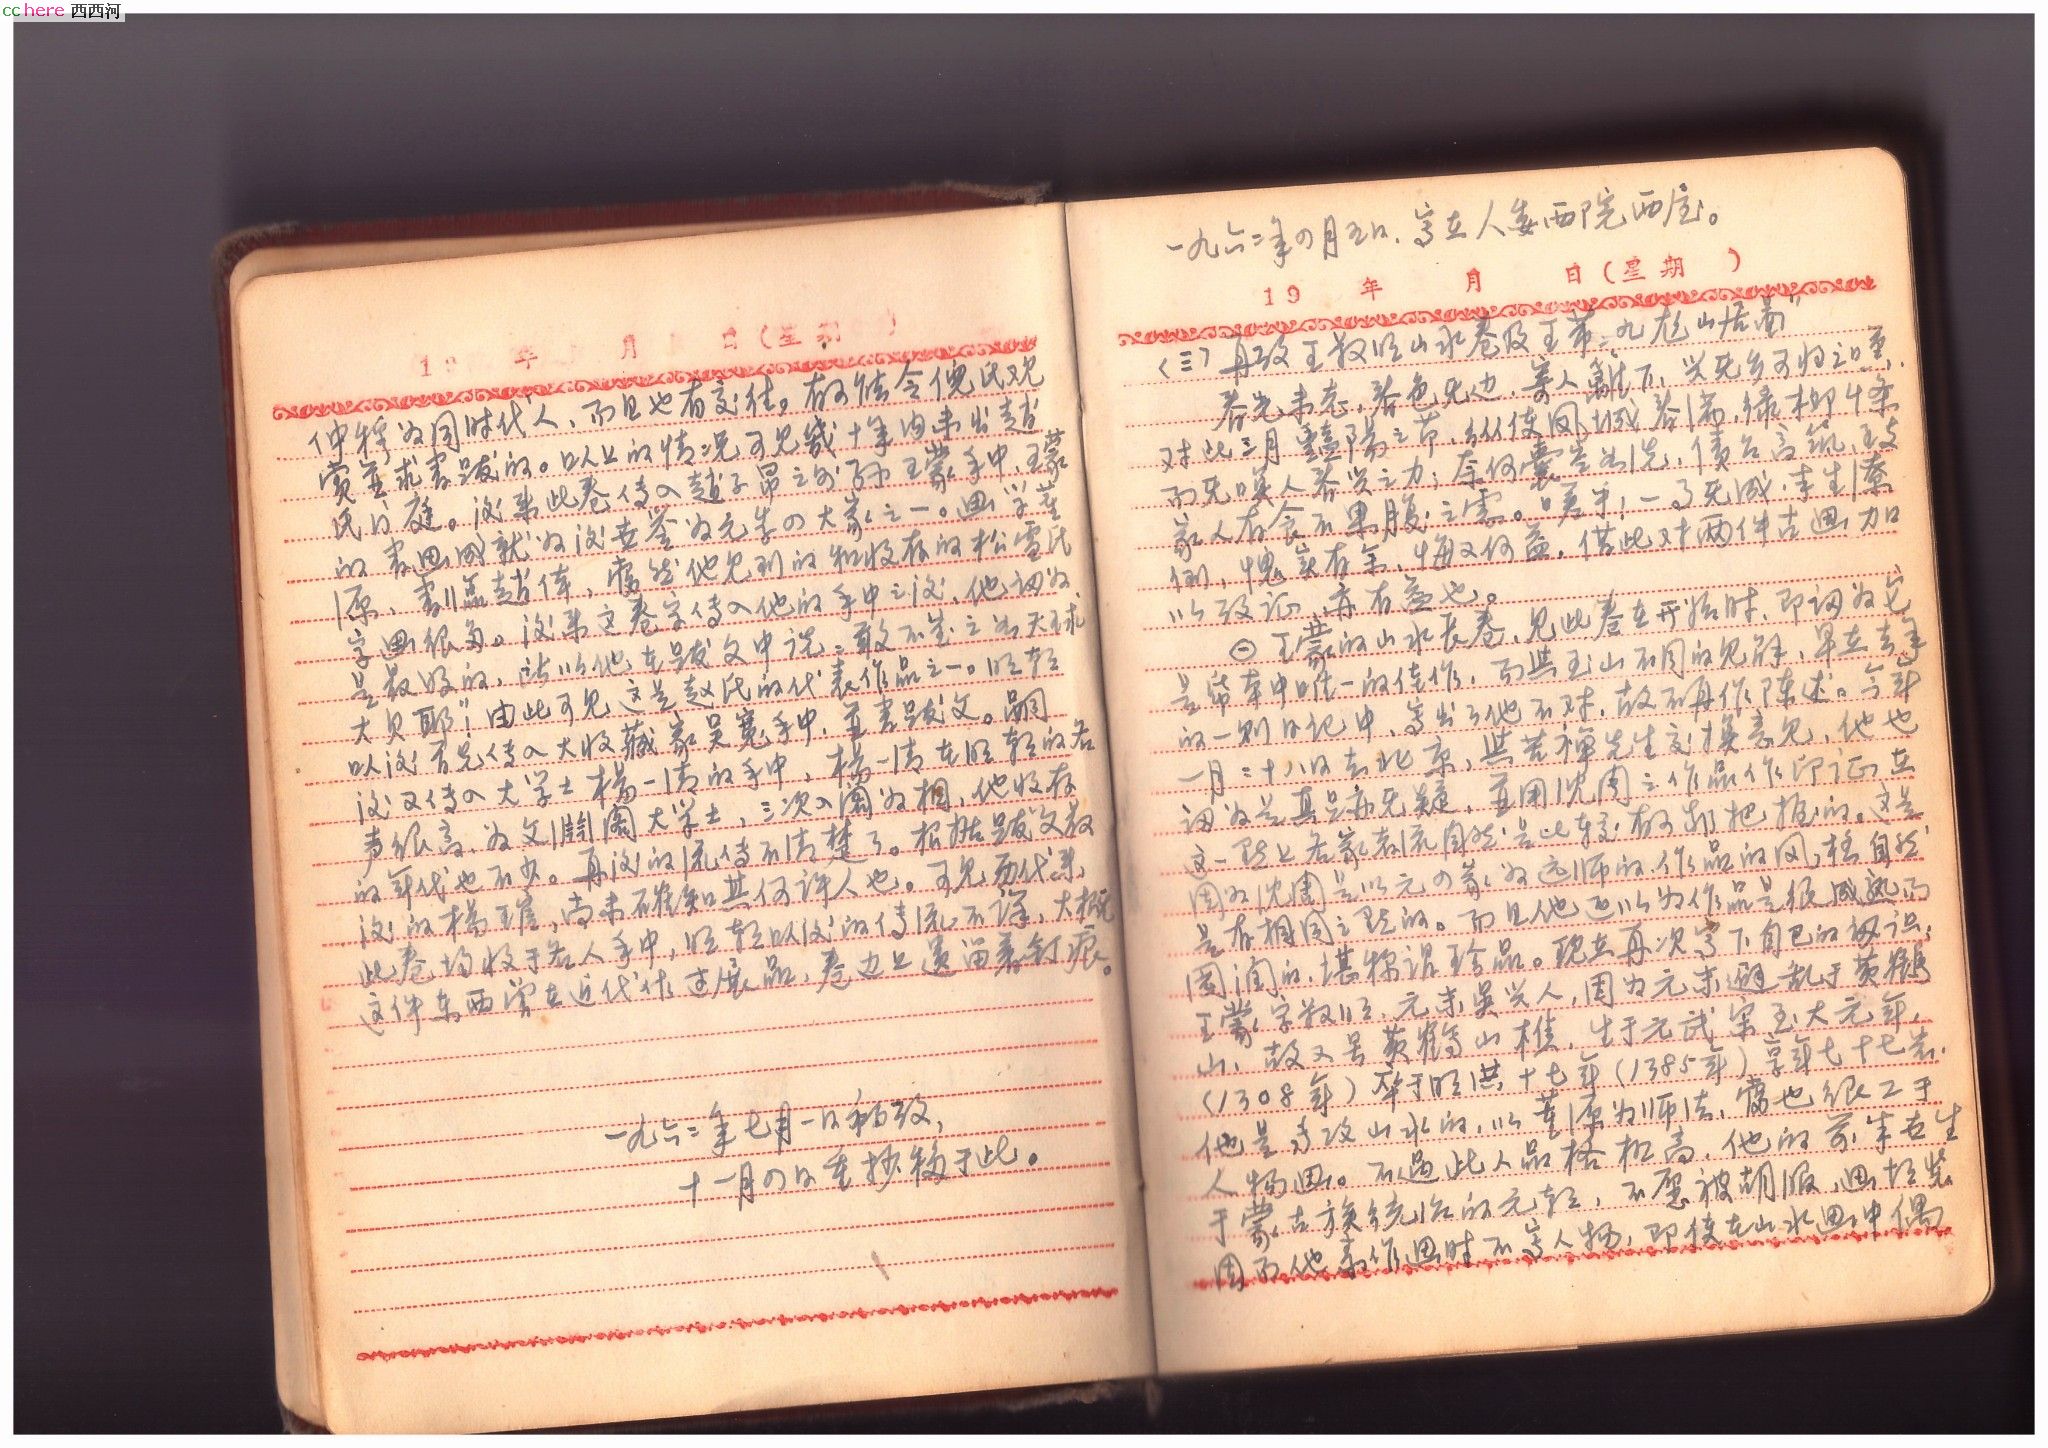 cchere 西西河
19 年 月 日(星期 )
仲穆为同时代人,而且也有交往。故能令倪氏观
赏并求书跋的。以上的情况可见几十年内未出赵
氏门庭。后来此卷传入赵子昂之外孙王蒙手中,王蒙
的书画成就为后世鉴为元季四大家之一。画学董
源,书学赵体,当然他见到的和收存的松雪氏
字画很多。后来这卷字传入他的手中之后,他认为
是最好的,所以他在跋文中说:敢不宝之为天球
大贝耶!由此可见这是赵氏的代表作品之一。明朝
以后首先传入大收藏家吴宽手中,并书跋文。嗣
后又传入大学士杨一清的手中,杨一清在明朝的名
声很高,为文渊阁大学士,三次入阁为相,他收存
的年代也不少。再后的流传不清楚了。根据跋文最
后的杨 ,尚未确知其何许人也。可见历代来,
此卷均收于名人手中,明朝以后的传流不详,大概
这件东西曾在近代作过展品,卷边上遗留着钉痕。
一九六二年七月一日初稿,
十一月四日重抄稿于此。
一九六二年四月五日,写在人委西院西屋。
19 年 月 日(星期 )
〈三〉再考王叔明山水卷及王蒙"九龙山居图"
春光未老,春色无边,寄人篱下,兴无乡可归之叹,
对此三月艳阳之节,纵使凤城春满,绿柳千条
而无唤人春兴之力;奈何囊空如洗,债台高筑,致
家人有食不果腹之虑。嗟乎!一事无成,半生潦
倒,愧 有余,悔又何益,借此对两件古画加
以考证,亦有益也。
㊀王蒙的山水长卷,见此卷在开始时,即认为它
是 中唯一的佳作,而与玉山不同的见解,早在去年
的一则日记中,写出了他不对,故不再作陈述。今年
一月二十八日去北京,与苦禅先生交换意见,他也
认为是真品亦无疑,并用沈周之作品作印证在
这一点上名家 自然是比较有把握的。这是
因为沈周是以元四家为远师的,作品的风格自然
是有相同之点的。而且他还以为作品是很成熟而
圆润的,堪称谓珍品。现在再次写下自己的认识:
王蒙,字叔明,元末吴兴人,因为元末避乱于黄鹤
山,故又号黄鹤山樵,生于元武宗至大元年,
(1308年)卒于明洪十七年(1385年)享年七十七岁。
他是专攻山水的,以董源为师法,当也很工于
人物画。不过此人品格极高,他的前半世生
于蒙古族统治的元朝,不愿被胡服,画 装
因而他素作画时不写人物,即使在山水画中偶